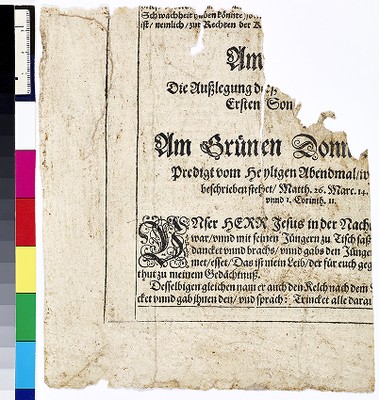 Schwachheit haben köndte
ist/ nemlich/ zur Rechten der
Am
Die Außlegung
Ersten Son
Am Grünen Don
Predigt vom Heyligen Abendmal/
beschrieben stehet/ Matth. 26. Marc. 14.
vnnd 1. Corinth. 11.
VNser HERR Jesus in der Nach
war/ vnnd mit seinen Jüngern zu Tisch saß
dancket vnnd brachs/ vnnd gabs den Jünge
met/ esset/ Das ist mein Leib/ der für euch geg
thut zu meinem Gedächtnuß.
Desselbigen gleichen nam er auch den Kelch nach dem
cket vnnd gab ihnen den/ vnd sprach: Trincket alle darau